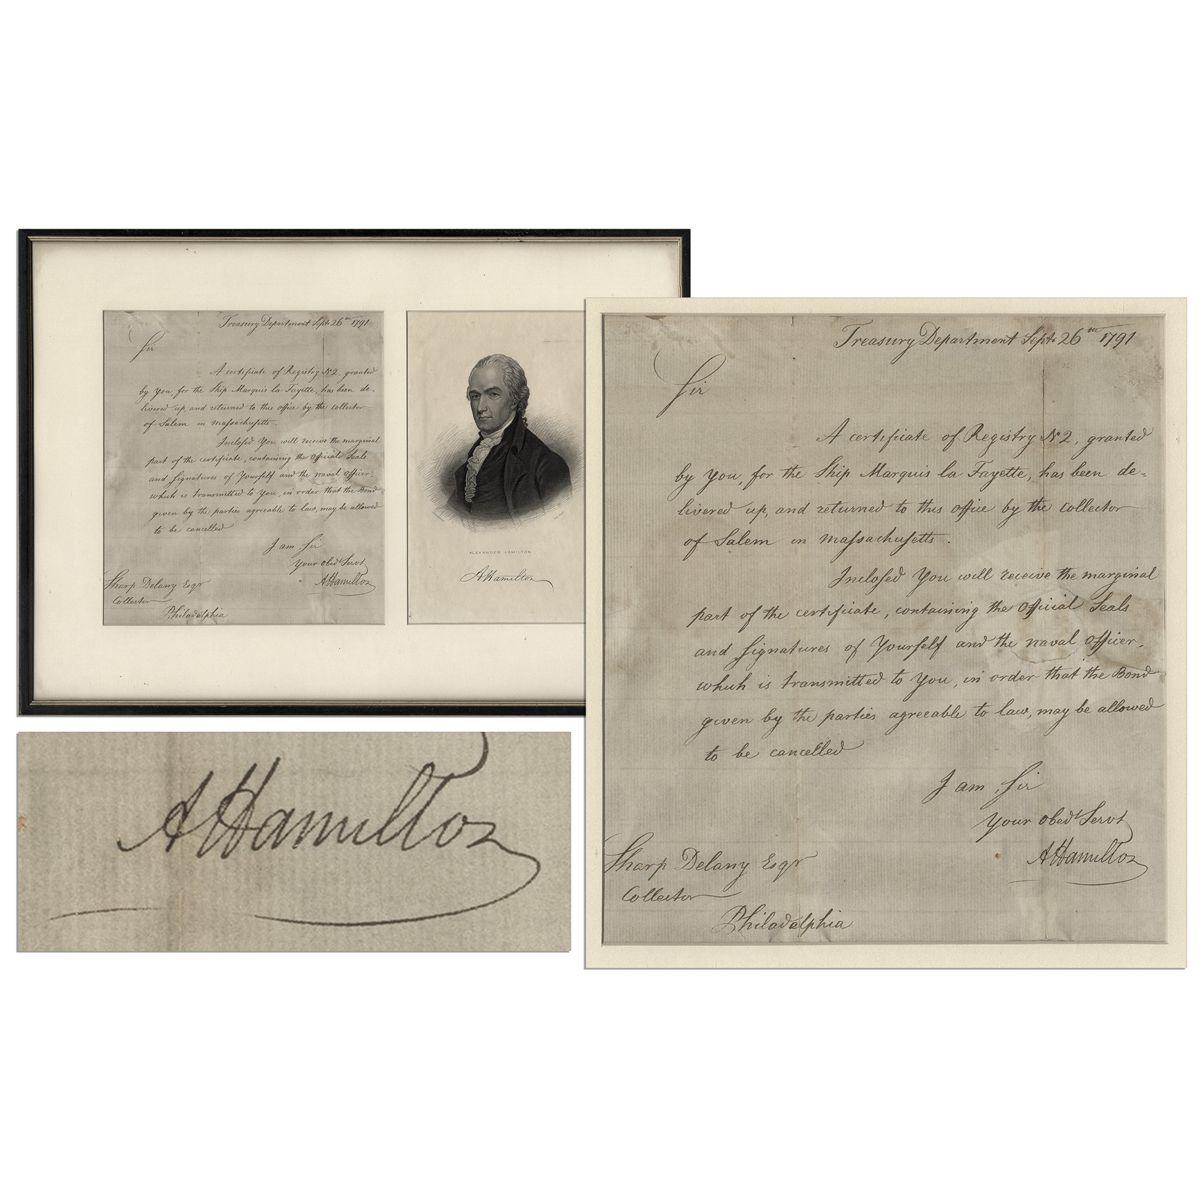 Treasury Department Sept. 26th 1791
Sir
A certificate of Registry No 2, granted
by You, for the Ship Marquis la Fayette, has been de-
livered up, and returned to this office by the collector
of Salem in Massachusetts.
Inclosed You will receive the marginal
part of the certificate, containing the Official Seals
and Signatures of Yourself and the naval Officer,
which is transmitted to You, in order that the Bond
given by the parties agreeable to law, may be allowed
to be cancelled
I am Sir
Your obed Servt
A Hamilton
Sharp Delany Esqr
Collector
Philadelphia
ALEXANDER HAMILTON
A Hamilton
Treasury Department Sept. 26th 1791
Sir
A certificate of Registry No 2, granted
by You, for the Ship Marquis la Fayette, has been de-
livered up, and returned to this office by the collector
of Salem in Massachusetts.
Inclosed You will receive the marginal
part of the certificate, containing the Official Seals
and Signatures of Yourself and the naval Officer,
which is transmitted to You, in order that the Bond
given by the parties agreeable to law, may be allowed
to be cancelled
I am, Sir
Your obed Servt
A Hamilton
Sharp Delany Esqr
Collector
Philadelphia
A Hamilton